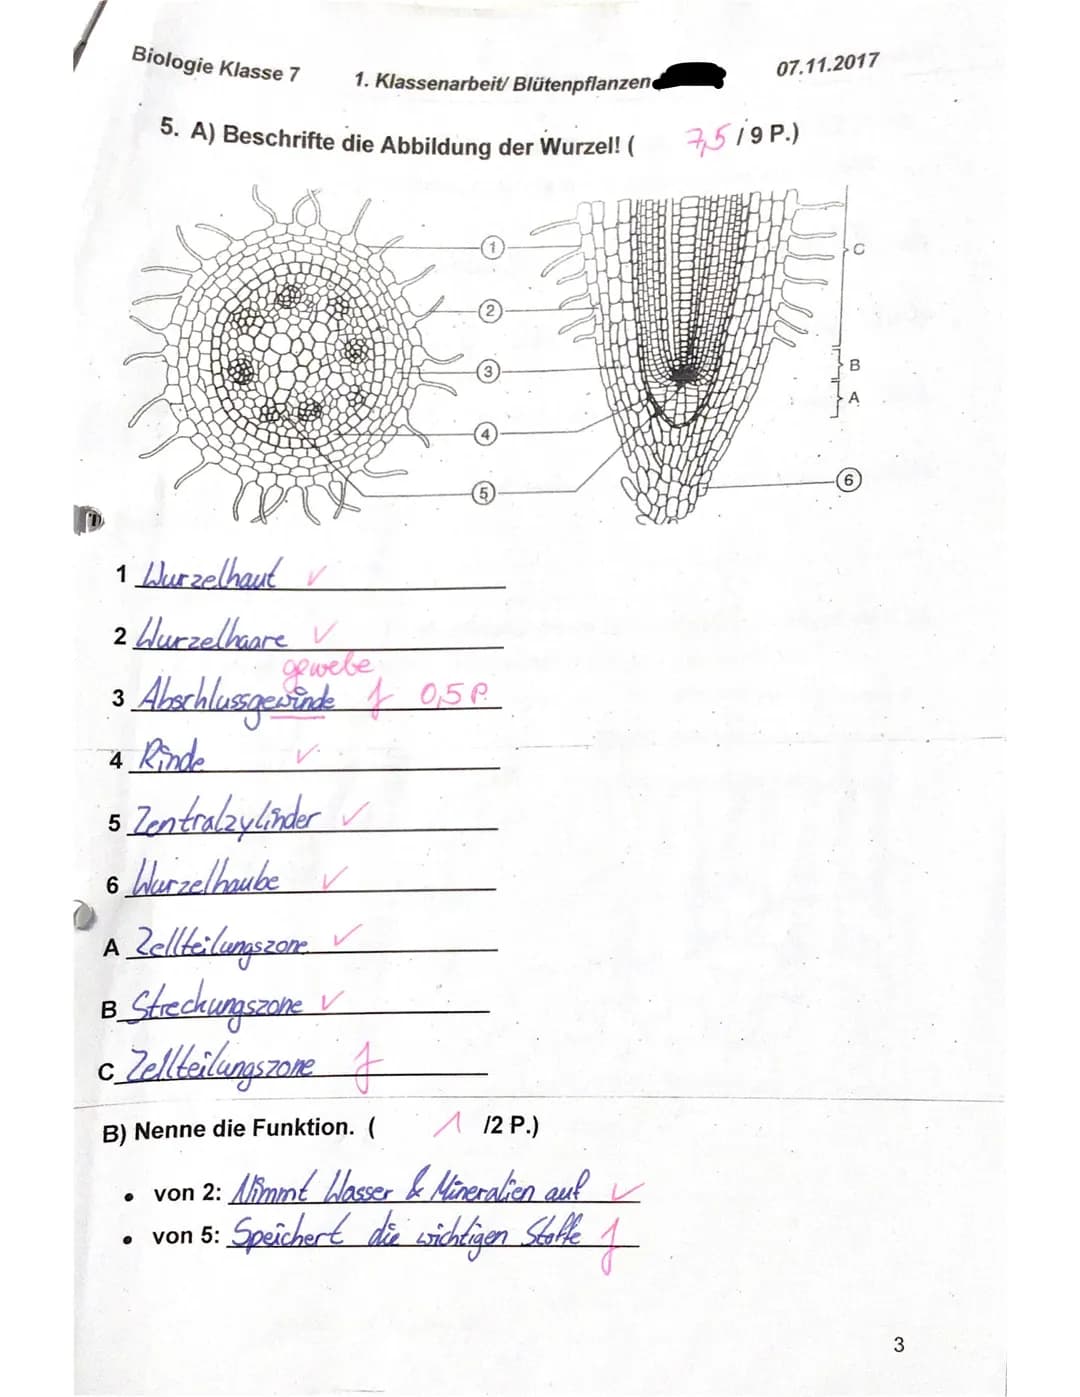 Biologie Klasse 7 1. Klassenarbeit/ Blütenpflanzen 07.11.2017
5. A) Beschrifte die Abbildung der Wurzel! ( 7,5 / 9 P.)
1
C
2
B
3
A
4
6
5
1 Wurzelhaut ✓
2 Wurzelhaare ✓
gewebe
3 Abschlussgewinde f 0,5 P.
4 Rinde ✓
5 Zentralzylinder ✓
6 Wurzelhaube ✓
A Zellteilungszone ✓
B Streckungszone ✓
C Zellteilungszone f
B) Nenne die Funktion. ( 1 /2 P.)
• von 2: Nimmt Wasser & Mineralien auf ✓
• von 5: Speichert die wichtigen Stoffe f
3